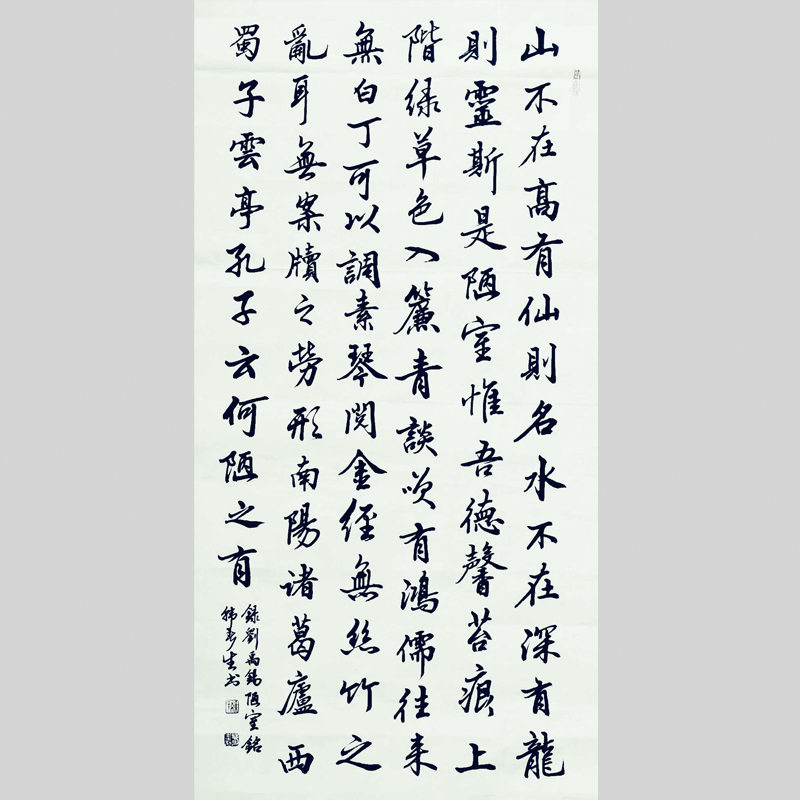 山不在高有仙則名水不在深有龍
則靈斯是陋室惟吾德馨苔痕上
階绿草色入簾青談咲有鴻儒往来
無白丁可以調素琴閱金經無絲竹之
亂耳無案牘之勞形南陽诸葛廬西
蜀子雲亭孔子云何陋之有
録劉禹錫陋室銘
生书